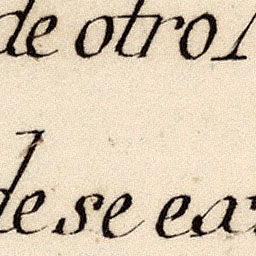 de otro
de se